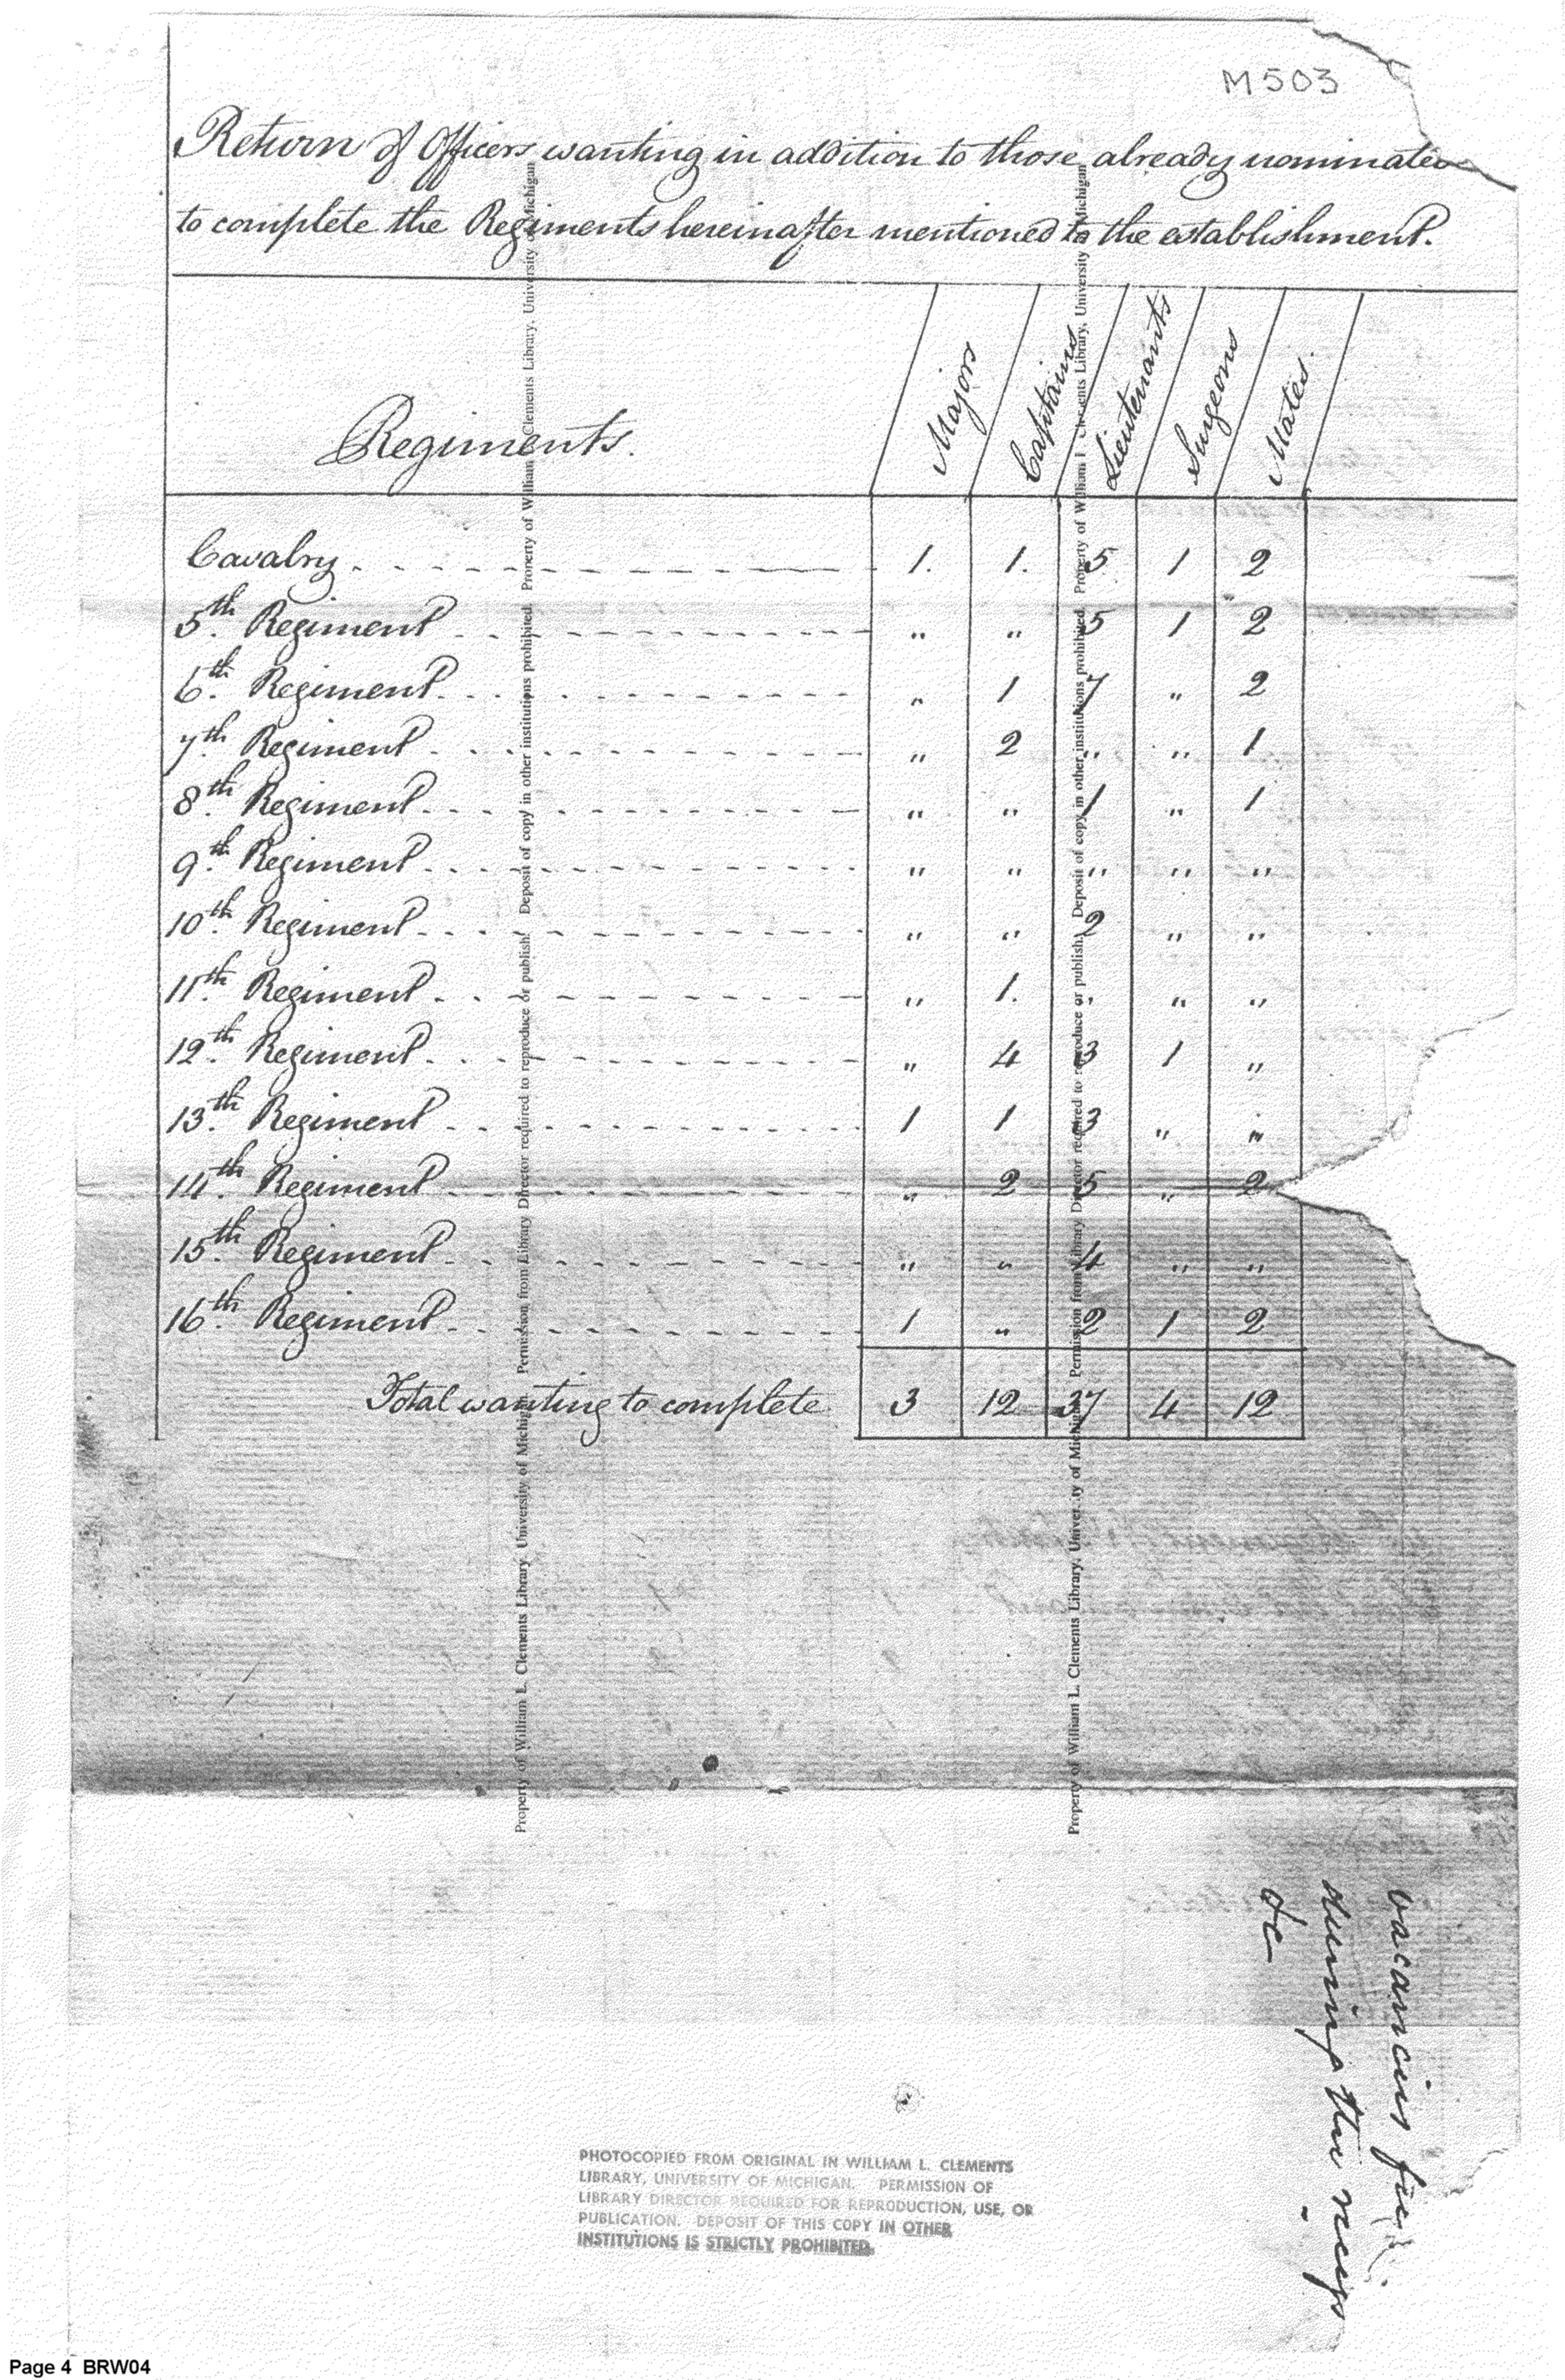 M503
Return of Officers wanting in addition to those already nominated
to complete the Regiments hereinafter mentioned to the establishment.
Regiments. Majors Captains Lieutenants Surgeons Mates.
Cavalry 1. 1. 5 1 2
5th. Regiment " " 5 1 2
6th. Regiment " 1 7 " 2
7th. Regiment " 2 " " 1
8th. Regiment " " 1 " 1
9th. Regiment " " " " "
10th. Regiment " " 2 " "
11th. Regiment " 1. " " "
12th. Regiment " 4 3 1 "
13th. Regiment 1 1 3 " "
14th. Regiment " 2 5 " 2
15th. Regiment " " 4 " "
16th. Regiment 1 " 2 1 2
Total wanting to complete 3 12 37 4 12
Property of William L. Clements Library, University of Michigan. Permission from Library Director required to reproduce or publish. Deposit of copy in other institutions prohibited. Property of William L. Clements Library, University of Michigan
Property of William L. Clements Library, University of Michigan. Permission from Library Director required to reproduce or publish. Deposit of copy in other institutions prohibited. Property of William L. Clements Library, University of Michigan
vacancies
during the recess
&c
PHOTOCOPIED FROM ORIGINAL IN WILLIAM L. CLEMENTS
LIBRARY, UNIVERSITY OF MICHIGAN. PERMISSION OF
LIBRARY DIRECTOR REQUIRED FOR REPRODUCTION, USE, OR
PUBLICATION. DEPOSIT OF THIS COPY IN OTHER
INSTITUTIONS IS STRICTLY PROHIBITED.
Page 4 BRW04